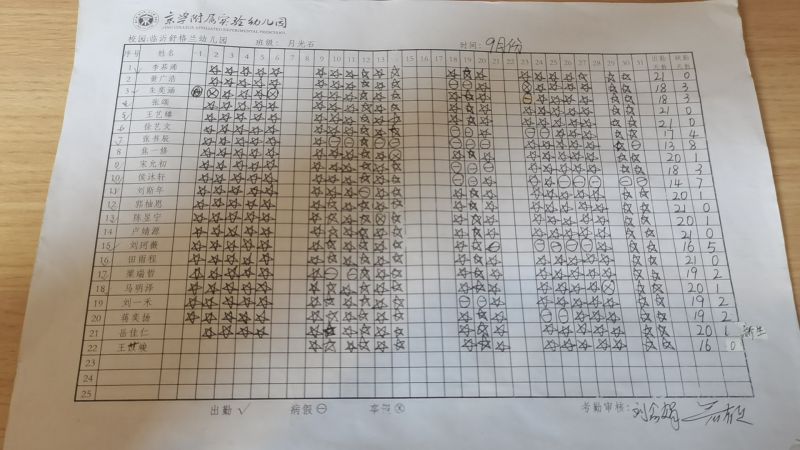 京学附属实验幼儿园
校园:临沂舒格兰幼儿园 班级: 月光石 时间: 9月份
序号 姓名 1 2 3 4 5 6 7 8 9 10 11 12 13 14 15 16 17 18 19 20 21 22 23 24 25 26 27 28 29 30 31 出勤天数 缺勤天数
1 21 0
2 黄广浩 18 3
3 朱奕涵 18 3
4 张颂 21 0
5 王艺檬 21 0
6 徐艺文 17 4
7 张书辰 13 8
8 焦一修 20 1
9 宋允初 18 3
10 侯沐轩 14 7
11 刘斯年 20 1
12 郭柚恩 21 0
13 陈昱宇 20 1
14 卢靖源 21 0
15 刘珂薇 16 5
16 田雨程 21 0
17 梁瑞哲 19 2
18 马明泽 20 1
19 刘一禾 19 2
20 蒋奕扬 19 2
21 岳佳仁 20 1
22 16 0
23
24
25
出勤 ✓ 病假 ⊖ 事假 ⊗ 考勤审核: